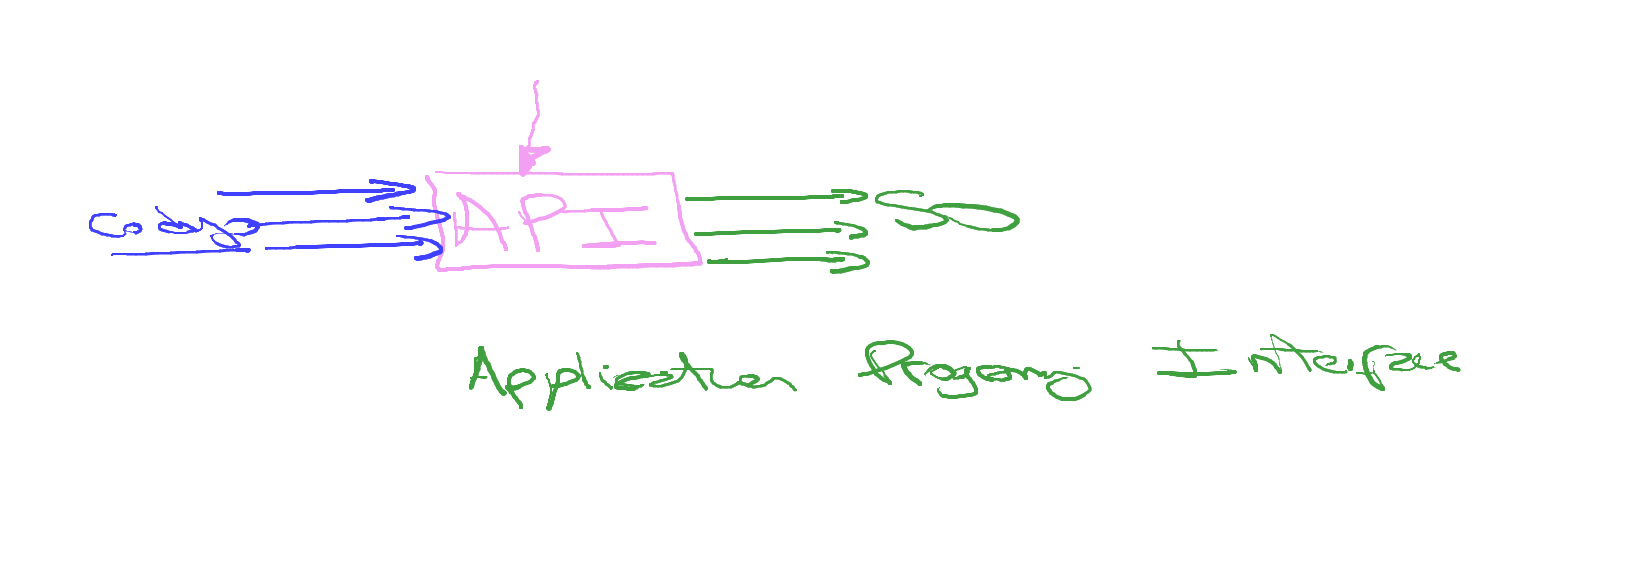 coding API SO
Application Programg Interface